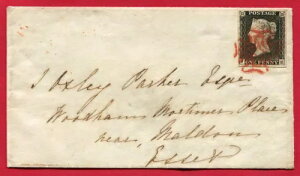 POSTAGE
ONE PENNY
J Oxley Parker Esqre
Woodham Mortimer Place
near Maldon
Essex